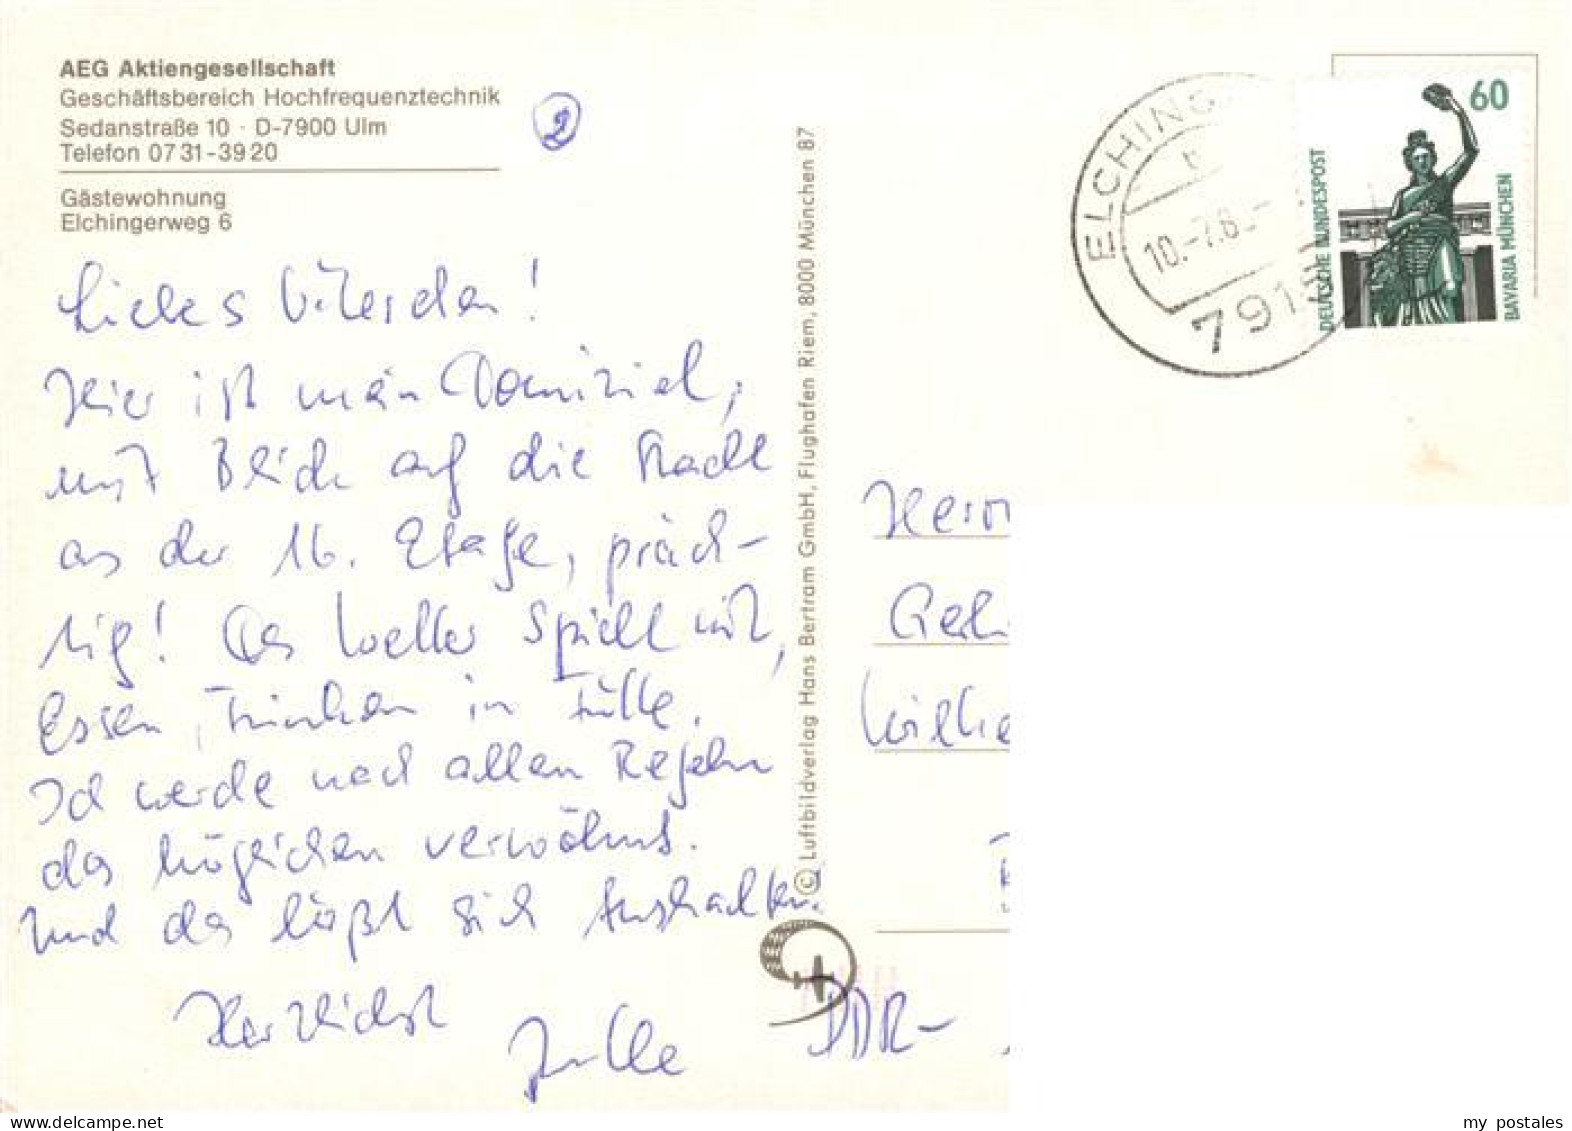 AEG Aktiengesellschaft
Geschäftsbereich Hochfrequenztechnik
Sedanstraße 10 · D-7900 Ulm
Telefon 0731-3920
2
Gästewohnung
Elchingerweg 6
Liebes
Hier ist mein Domiziel,
mit Blick auf die Stadt
aus der 16. Etage, präch-
tig! Das Wetter spielt mit,
Essen, Trinken in Fülle.
Ich werde nach allen Regeln
das verwöhnt.
Und das läßt sich aushalten.
Herzlichst
© Luftbildverlag Hans Bertram GmbH, Flughafen Riem, 8000 München 87
ELCHING
10.-7.8
791
60
DEUTSCHE BUNDESPOST
BAVARIA MÜNCHEN
Herrn
DDR-
my postales